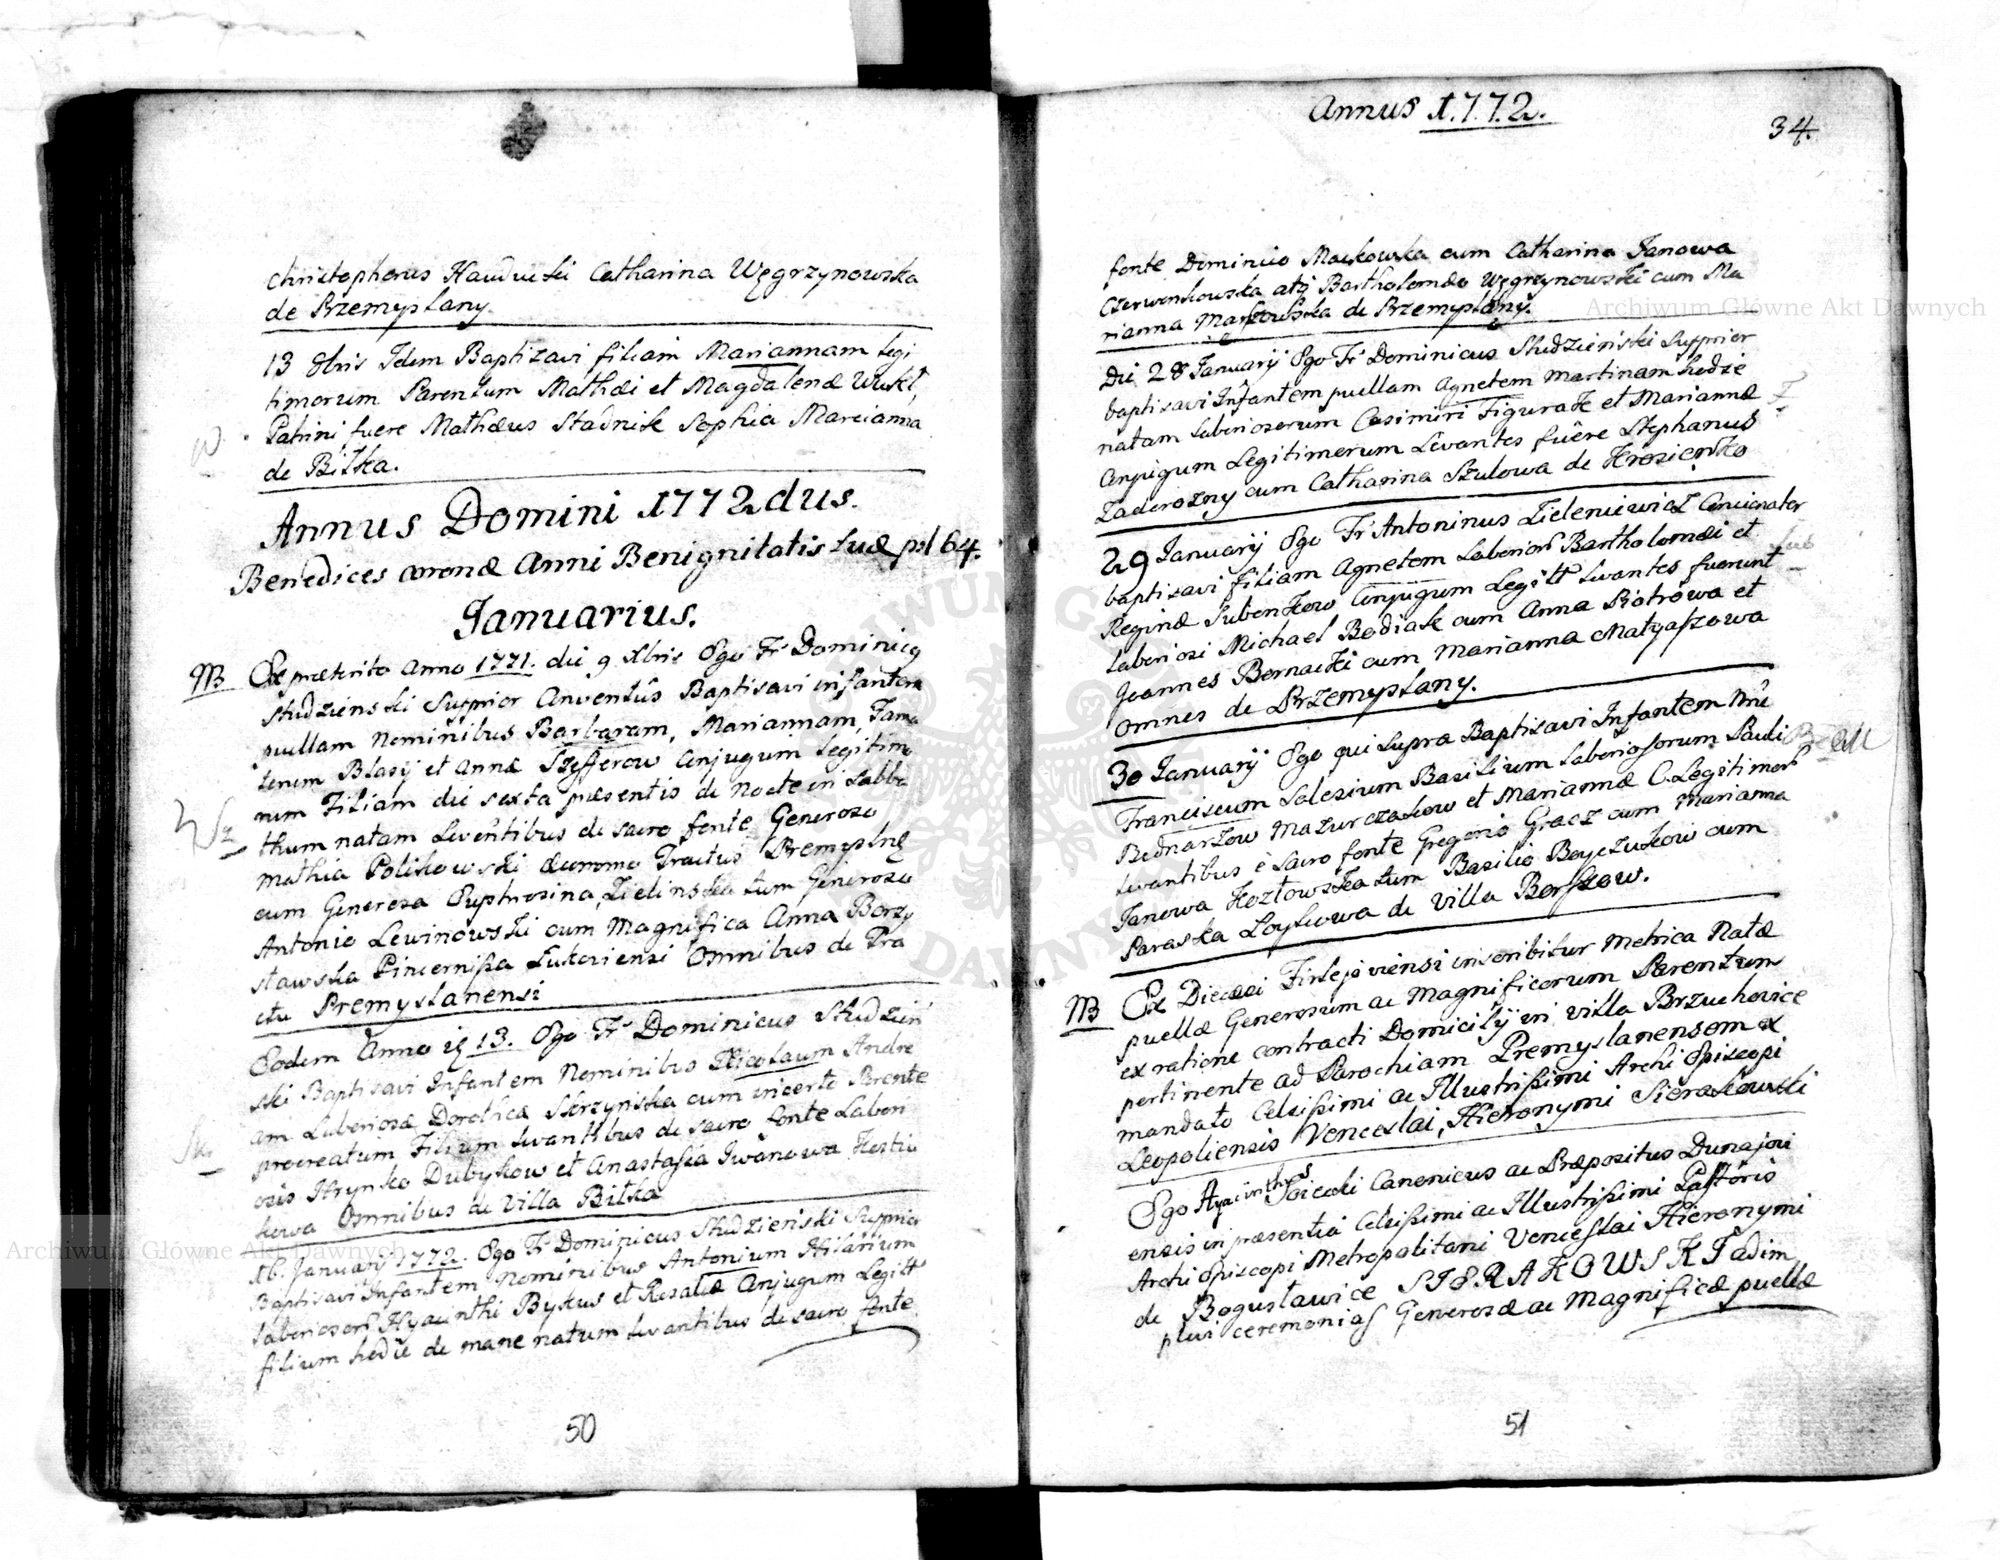 Christophorus Catharina Węgrzynowska
de Przemyslany.
13 Idem Baptizavi filiam Mariannam legi
timorum Parentum Mathæi et Magdalenæ
Patrini fuere Mathæus Stadnik Sophia Marcianna
de Biłka.
Annus Domini 1772dus.
Benedices coronæ Anni Benignitatis tuæ psl 64.
Januarius.
NB Ex præterito Anno 1771. die 9 Xbris Ego Fr Dominicq
Studzienski Supprior Conventûs Baptisavi infantem
puellam Nominibus Barbaram, Mariannam, Fama
Blasij et Annæ Szefferow Conjugum legitimo
rum Filiam die sexta præsentis de Nocte in Sabba
thum natam Levântibus de sacro fonte Generoso
Mathia Polikowski œconomo Tractus Premyslnę
cum Generosa Euphrosina Zielinska tum Generoso
Antonio Lewinowski cum Magnifica Anna Borzy
sławska Pincernißa Omnibus de Tra
ctu Premyslanensi
Eodem Anno 13. Ego Fr Dominicus Studzien
ski Baptisavi Infantem Nominibus Nicolaum Andre
am Laboriosæ Dorotheæ Skrzyńska cum incerto Parente
procreatum Filium levantibus de sacro fonte Labori
osis Hrynko Dubykow et Anastasia Iwanowa Kostiu
kowa Omnibus de Villa Bitka
Januarij 1772. Ego Fr Dominicus Studzieński Supprior
Baptisavi Infantem Nominibus Antonium Hilarium
Laboriosorũ Hyacinthi Bykus et Rosaliæ Conjugum Legitt
filium hodie de mane natum levantibus de sacro fonte
50
Annus 1.7.7.2.
34.
fonte Dominico Mackowska cum Catharina Janowa
Czerwonkowska Bartholomæo Węgrzynowski cum Ma
rianna de Przemyslany.
Die 28 Januarij Ego Fr Dominicus Studzieński Supprior
baptisavi Infantem puellam Agnetem Martinam hodie
natam Laboriosorum Casimiri Figurak et Mariannæ
Conjugum Legitimorum Levantes fuêre Stephanus
Zadorozny cum Catharina Szulowa de Krosienko
29 Januarij Ego Fr Antoninus Zieleniewicz Concionator
baptisavi filiam Agnetem Laborior Bartholomæi et
Reginæ Conjugum Legitt Levantes fuerunt
Laboriosi Michael Bodiak cum Anna Piotrowa et
Joannes Bernacki cum Marianna Matyaszowa
omnes de Przemyslany.
30 Januarij Ego qui supra Baptisavi Infantem
Franciscum Salesium Basilium Laboriosorum Pauli
Bednarzow Mazurczakow et Mariannæ C. Legitimor
Levantibus è sacro fonte Gregorio Gracz cum Marianna
Janowa Kozłowska tum Basilio Boyczukow cum
Paraska Loykowa de villa Borszow.
NB Ex Diecæsi inscribitur Metrica Natæ
puellæ Generosum ac Magnificorum Parentum
ex ratione contracti Domicilij in villa Brzuchovice
pertinente ad Parochiam Premyslanensem ex
mandato Celsißimi ac Illustrißimi Archi Episcopi
Leopoliensis Venceslai, Hieronymi Sierakowski
Ego Hyacinthus Canonicus ac Præpositus Dunajovi
ensis in præsentiâ Celsißimi ac Illustrißimi Pastoris
Archi Episcopi Metropolitani Venceslai Hieronymi
de Bogusławice SIERAKOWSKI adim
plevi ceremonias Generosæ ac Magnificæ puellæ
51
Archiwum Główne Akt Dawnych
Archiwum Główne Akt Dawnych